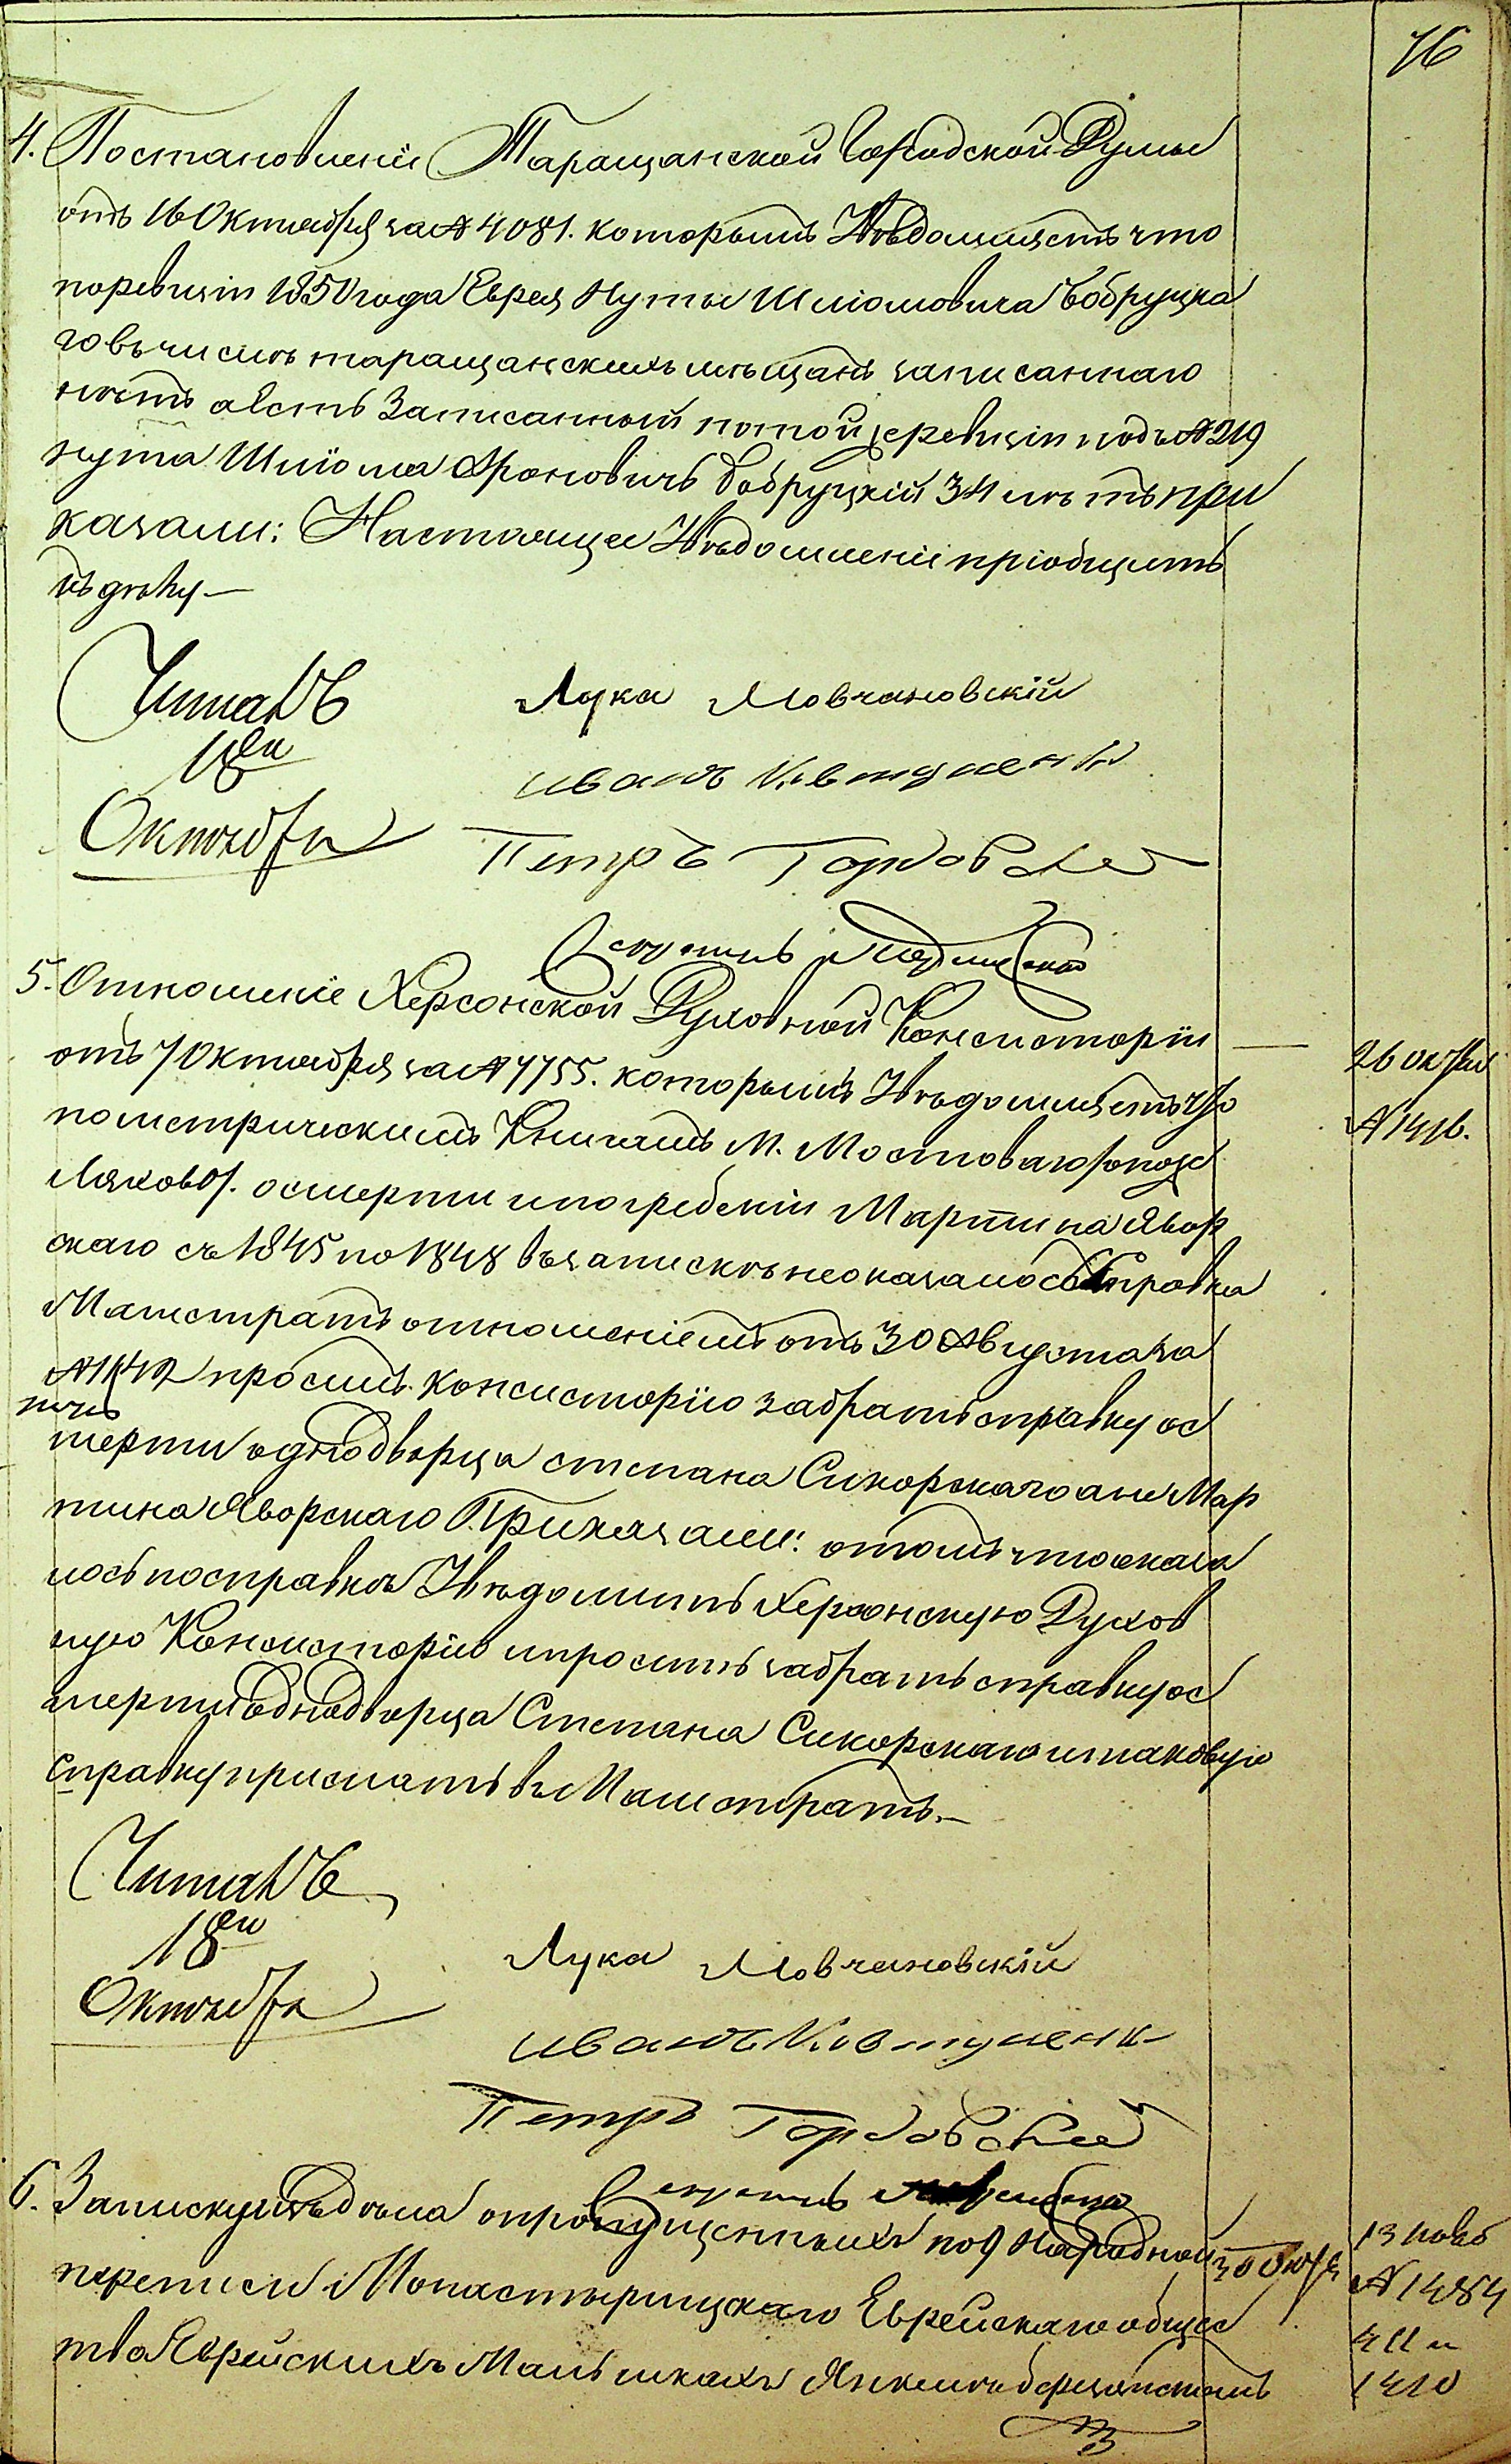 76
4. Постановленіе Таращанской Городской Думы
отъ 16 Октября за № 4081. которымъ Увѣдомляетъ что
поревизіи 1850 года Еврея Нуты Шліомовича Бобруцка
го въ числѣ таращанскихъ мѣщанъ записаннаго
нѣтъ а Есть Записанный потой ревизіи подъ № 219
нута Шліома Ароновичъ Бобруцкій 34 лѣтъ при
казали: Настоящее Увѣдомленіе пріобщить
къ дѣлу —
Читалъ Лука Мовчановскій
18го Иванъ Ковтуненко
Октября Петръ Горковскій
Секретарь
5. Отношеніе Херсонской Духовной Консисторіи —
отъ 7 Октября за № 7755. которымъ Увѣдомляетъ что 26 октбря
пометрическимъ Книгамъ М. Мостоваго № 1416.
Ляхово. осмерти ипогребеніи Мартина Явор
скаго съ 1845 по 1848 въ запискѣ неоказалось Справка
Магистратъ отношеніемъ отъ 30 Августа за
№ 1142 просилъ консисторію забрать справку ос
мерти однодворца степана Сикорскаго ане Мар
тина Яворскаго Приказали: отомъ что оказа
лось посправкѣ Увѣдомить Херсонскую Духов
ную Консисторію ипросить забрать справку ос
мерти Однодворца Степана Сикорскаго итаковую
Справку прислать въ Магистратъ. —
Читалъ
18го Лука Мовчановскій
Октября Иванъ Ковтуненко
Петръ Горковскій
Секретарь
6. Записку изъ дѣла опропущенныхъ по 9 Народной 30 Октб 13 нояб
переписи Монастырищскаго Еврейскаго общес № 1484
тва Еврейскихъ Мальчикахъ Янкелѣ 411 и
1410